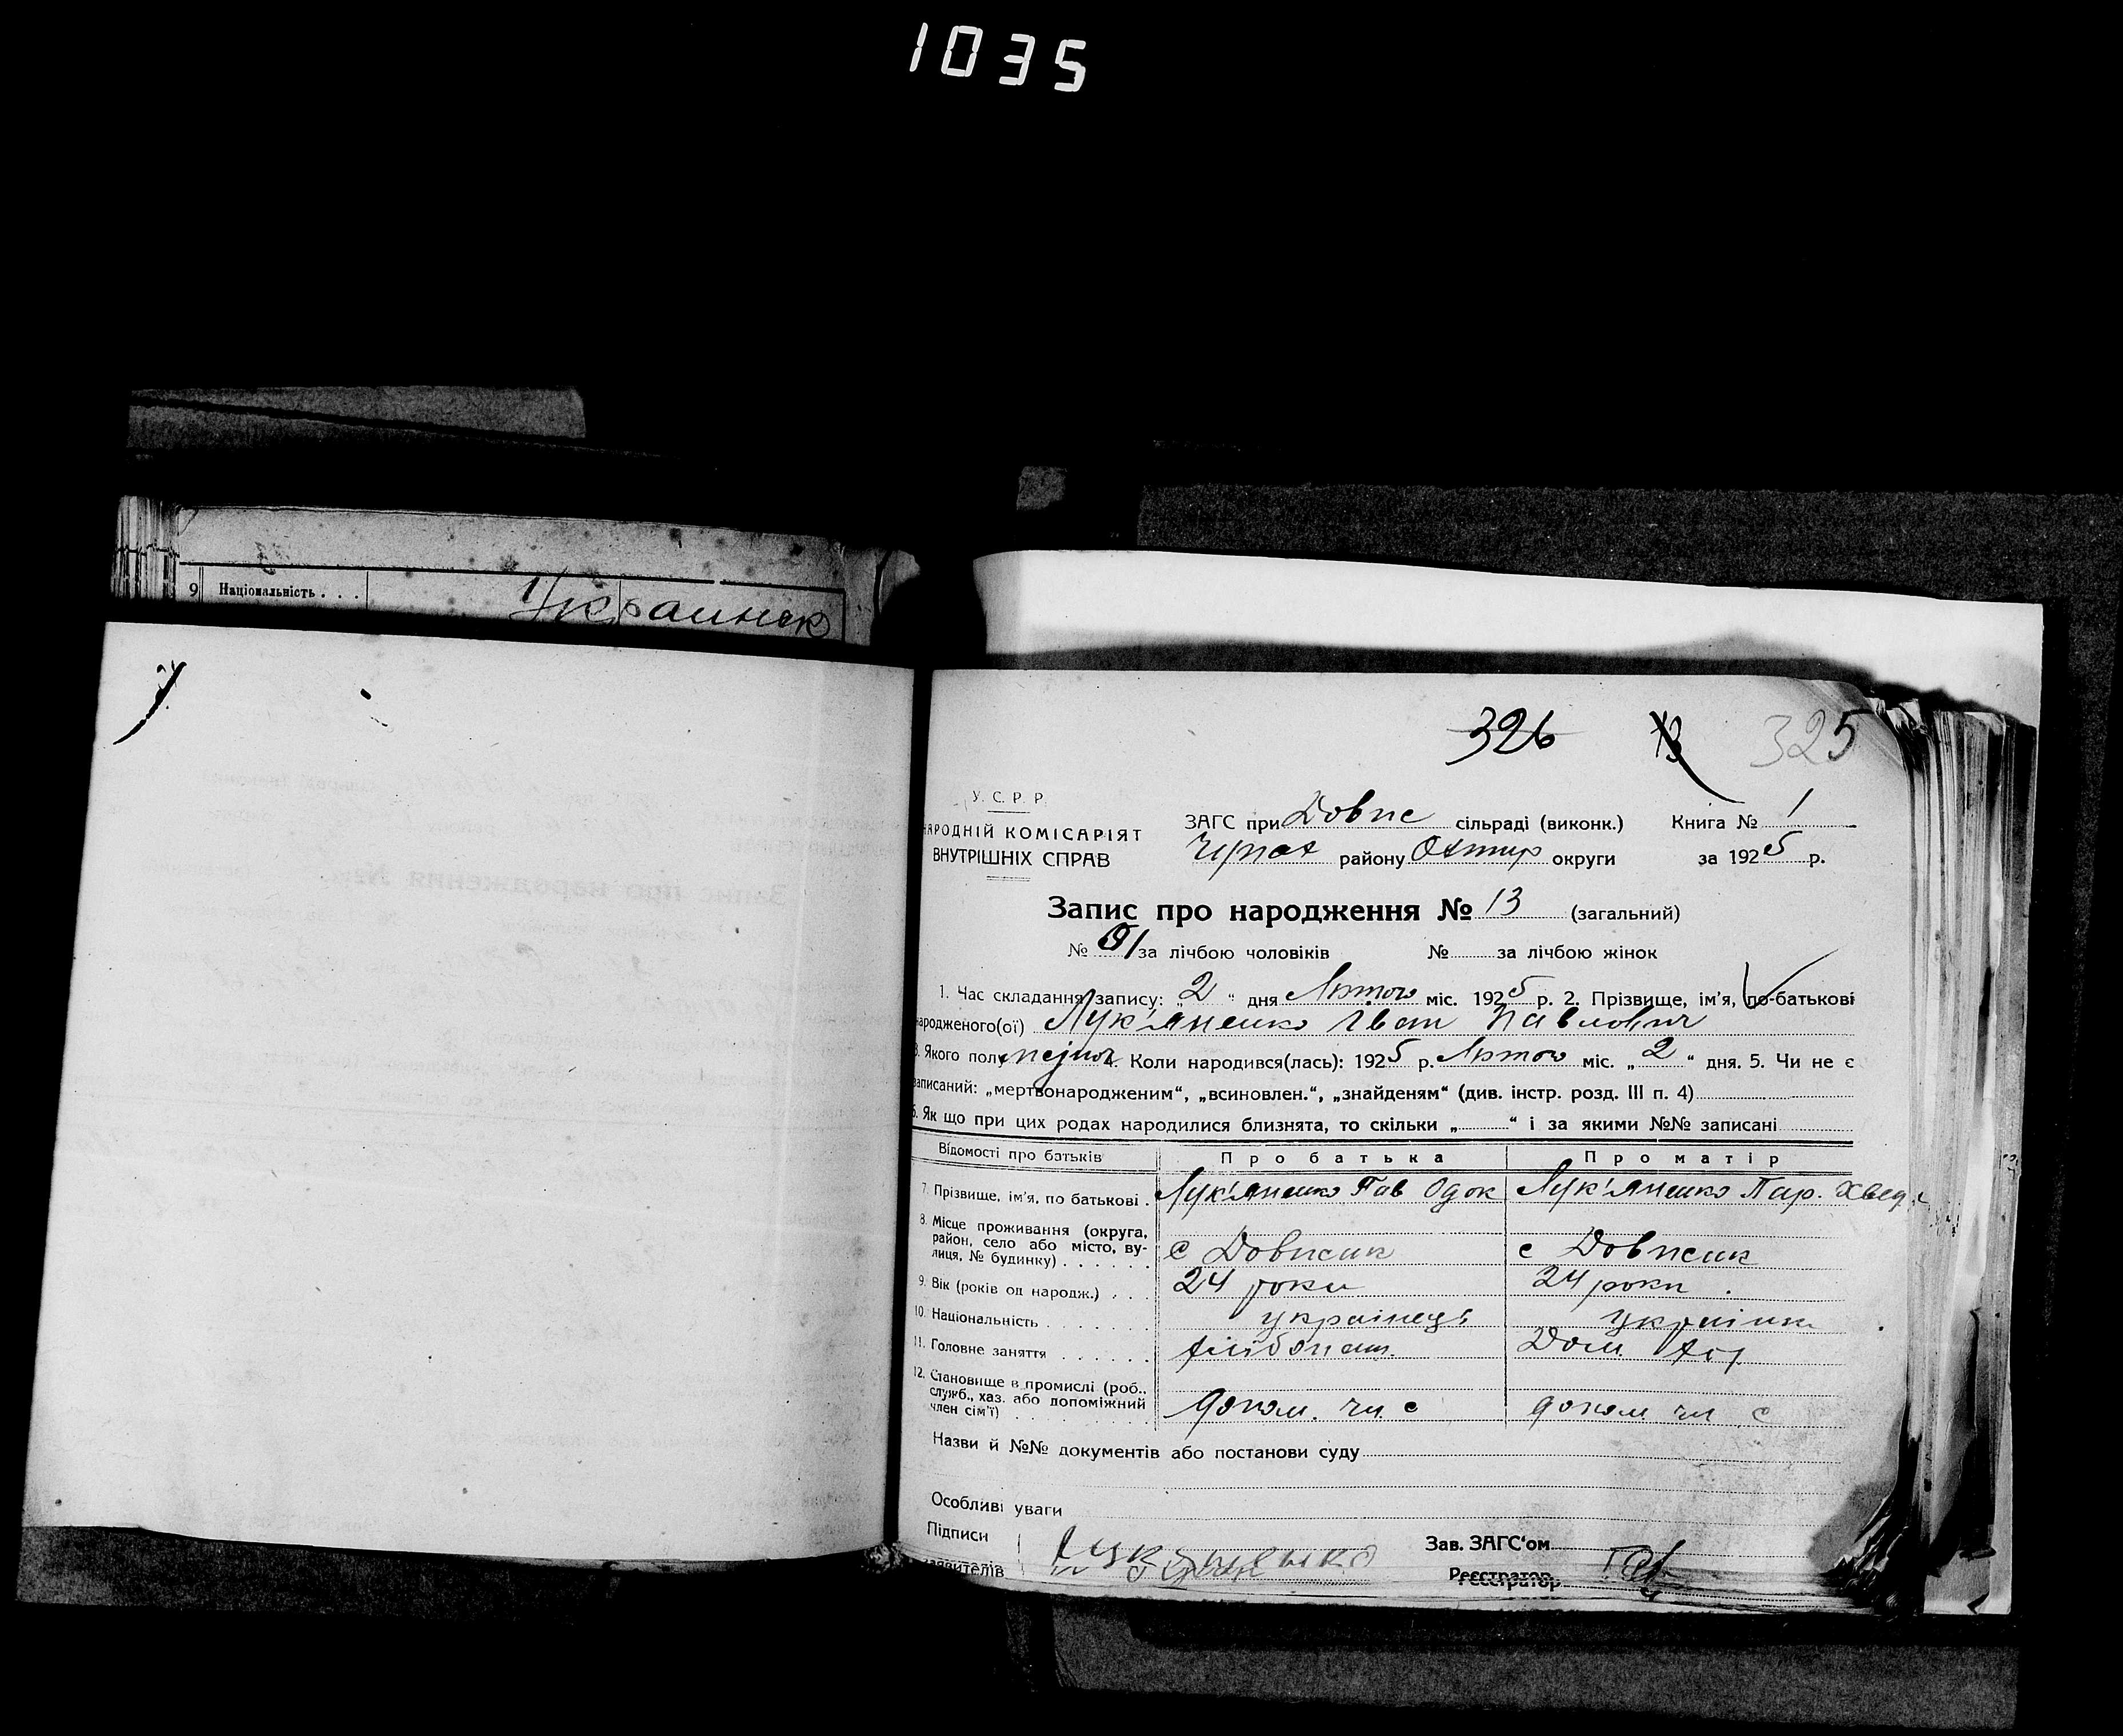 1035
9 Національність . . . Украинск
326 13 325
У. С. Р. Р.
НАРОДНІЙ КОМІСАРІЯТ
ВНУТРІШНІХ СПРАВ
ЗАГС при Довпс сільраді (виконк.) Книга № 1
Чупах району Охтир округи за 1925 р.
Запис про народження № 13 (загальний)
№ за лічбою чоловіків № за лічбою жінок
1. Час складання запису: „2“ дня Лютого міс. 1925 р. 2. Прізвище, ім'я, по-батькові
народженого(ої) Лук'яненко Іван Павлович
3. Якого полу 4. Коли народився(лась): 1925 р. Лютого міс. „2“ дня. 5. Чи не є
записаний: „мертвонародженим“, „всиновлен.“, „знайденям“ (див. інстр. розд. III п. 4)
6. Як що при цих родах народилися близнята, то скільки „ “ і за якими №№ записані
Відомості про батьків Про батька Про матір
7. Прізвище, ім'я, по батькові . Лук'яненко Пав Одок Лук'яненко Пар. Хвед.
8. Місце проживання (округа,
район, село або місто, ву-
лиця, № будинку) . . . . . . с с
9. Вік (років од народж.) . . . 24 роки 24 роки
10. Національність . . . . . . . українець українк
11. Головне заняття . . . . . . Дом.
12. Становище в промислі (роб.,
служб., хаз. або допоміжний
член сім'ї) . . . . . . . . . допом. чл. с допом чл с
Назви й №№ документів або постанови суду
Особливі уваги
Підписи
заявителів Лукяненко
Зав. ЗАГС'ом
Реєстратор